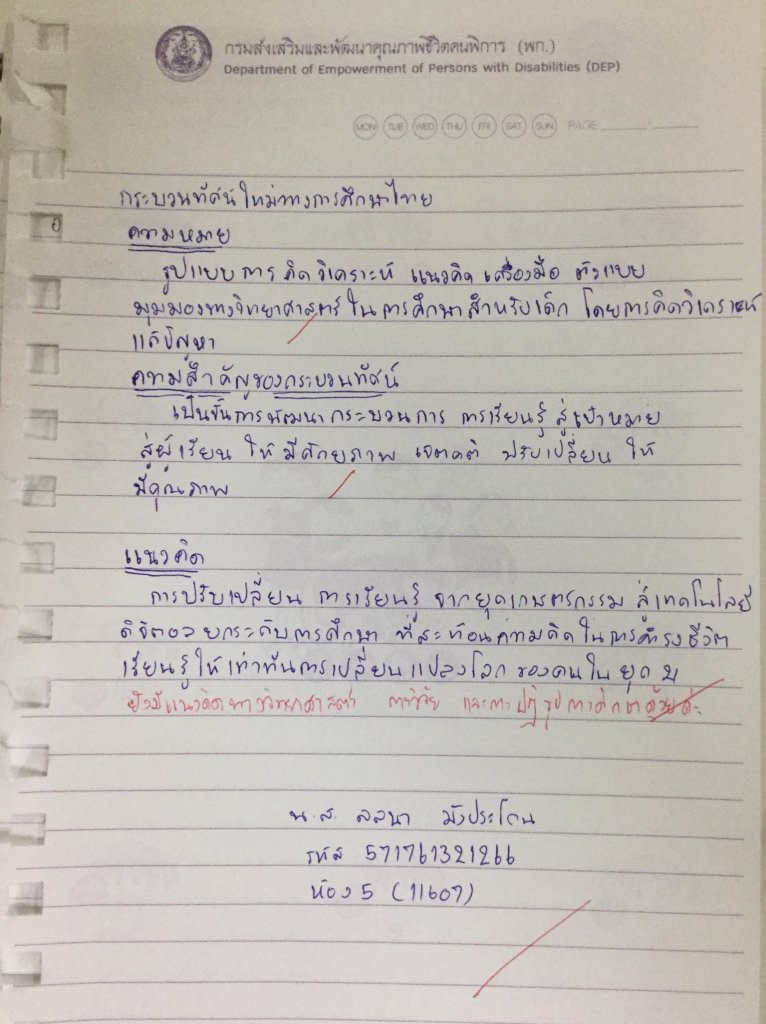 กรมส่งเสริมและพัฒนาคุณภาพชีวิตคนพิการ (พก.)
Department of Empowerment of Persons with Disabilities (DEP)
MON TUE WED THU FRI SAT SUN PAGE ____/____
กระบวนทัศน์ใหม่ทางการศึกษาไทย
ความหมาย
รูปแบบการคิดวิเคราะห์ แนวคิด เครื่องมือ ตัวแบบ
มุมมองทางวิทยาศาสตร์ ในการศึกษาสำหรับเด็ก โดยการคิดวิเคราะห์
แก้ปัญหา
ความสำคัญของกระบวนทัศน์
เป็นขั้นการพัฒนากระบวนการ การเรียนรู้ สู่เป้าหมาย
สู่ผู้เรียน ให้มีศักยภาพ เจตคติ ปรับเปลี่ยน ให้
มีคุณภาพ
แนวคิด
การปรับเปลี่ยน การเรียนรู้ จากยุคเกษตรกรรม สู่เทคโนโลยี
ดิจิตอลยกระดับการศึกษา ที่สะท้อนความคิดในการดำรงชีวิต
เรียนรู้ให้เท่าทันการเปลี่ยนแปลงโลก ของคนในยุค
ยังมีแนวคิดทางวิทยาศาสตร์ การวิจัย และการปฏิรูปการศึกษาด้วยค่ะ
น.ส. ลลนา
รหัส 571761321266
ห้อง 5 (11607)